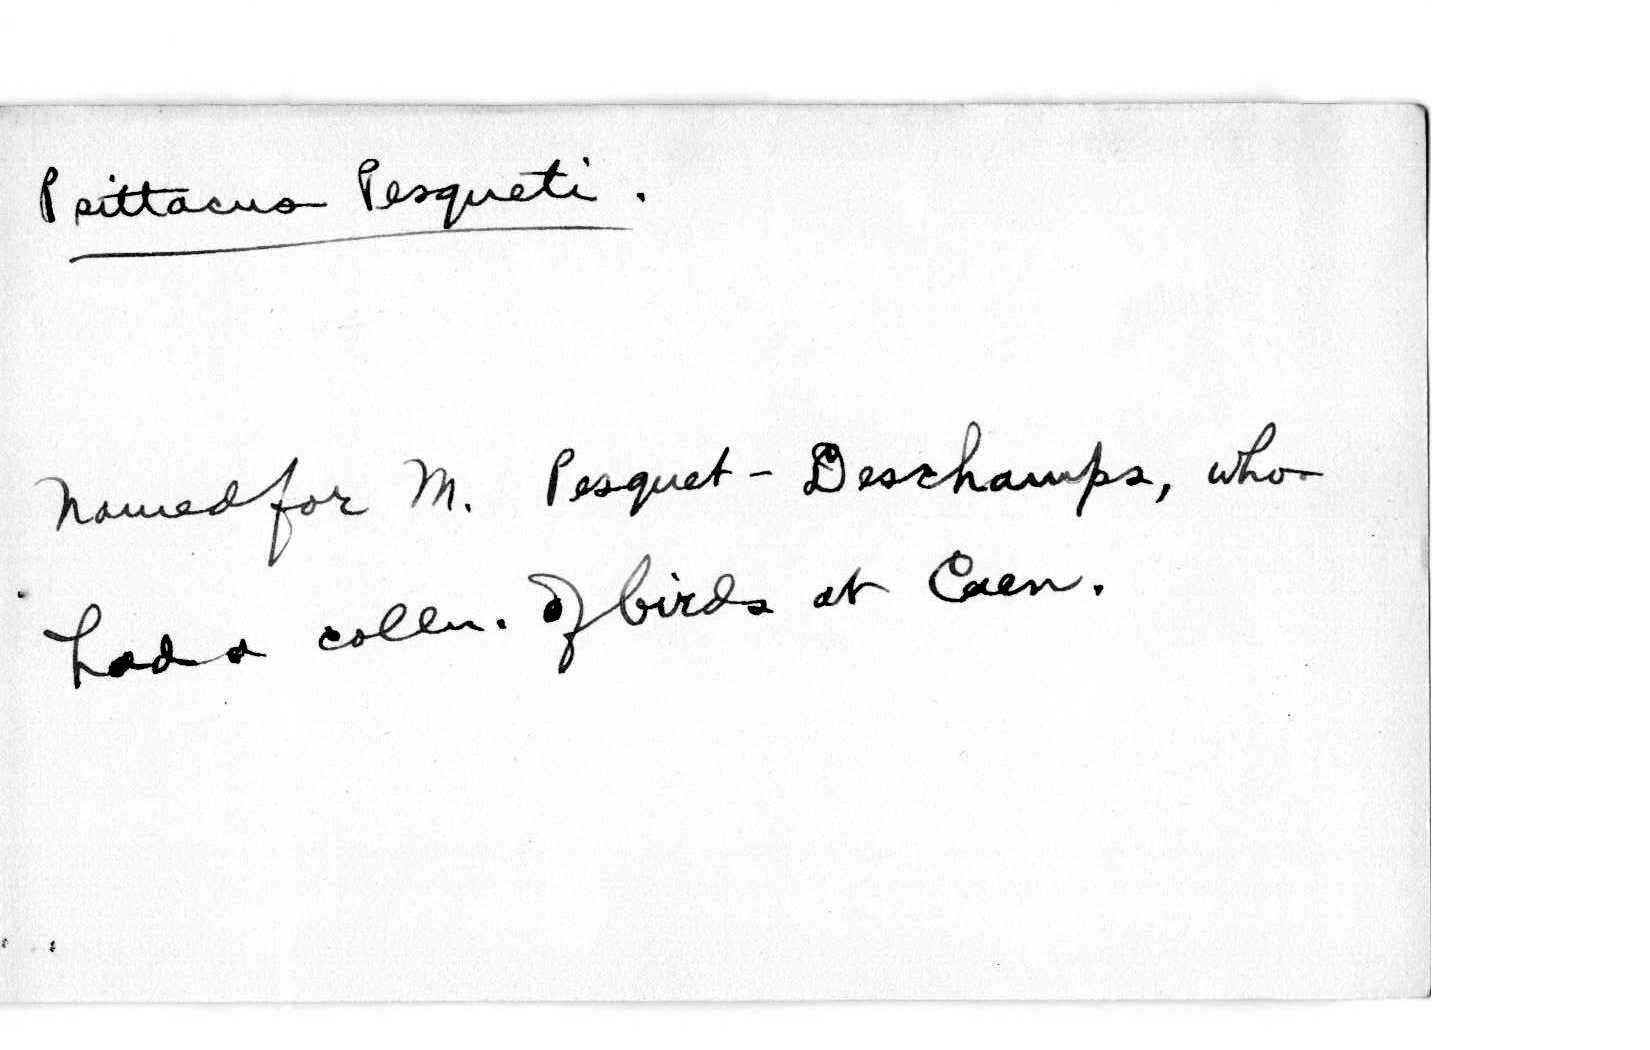 Psittacus Pesqueti.
Named for M. Pesquet-Deschamps, who
had a colln. of birds at Caen.